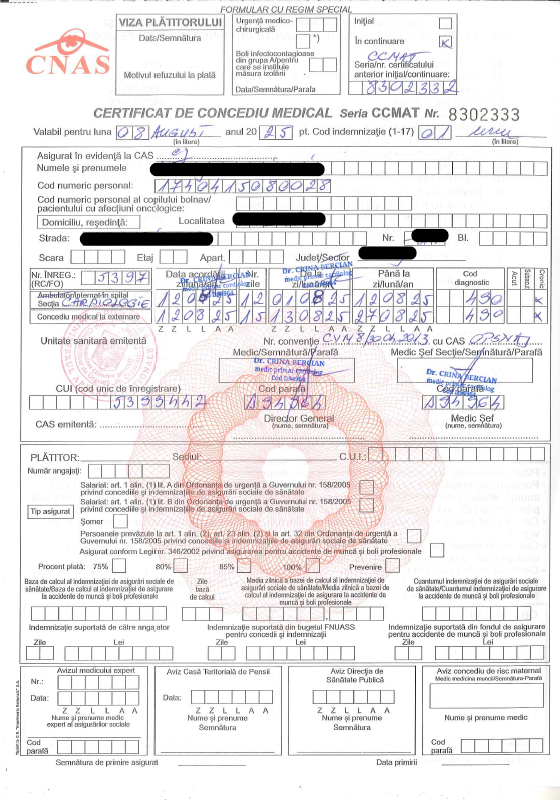 FORMULAR CU REGIM SPECIAL
CNAS
VIZA PLĂTITORULUI
Data/Semnătura
Motivul refuzului la plată
Urgență medico-chirurgicală
*)
Boli infectocontagioase din grupa A/pentru care se instituie măsura izolării
Data/Semnătura/Parafa
Inițial
În continuare K
CCMAT
Seria/nr. certificatului anterior inițial/continuare:
8302332
CERTIFICAT DE CONCEDIU MEDICAL Seria CCMAT Nr. 8302333
Valabil pentru luna 08 AUGUST anul 20 25 pt. Cod indemnizație (1-17) 01 unu
(în litere) (în litere)
Asigurat în evidență la CAS
Numele și prenumele
Cod numeric personal: 1740415080028
Cod numeric personal al copilului bolnav/pacientului cu afecțiuni oncologice:
Domiciliu, reședință: Localitatea
Strada: Nr. Bl.
Scara Etaj Apart. Județ/Sector
Nr. ÎNREG.: (RC/FO) 5397
Data acordării zi/luna/an Nr. zile De la zi/lună/an Până la zi/lună/an Cod diagnostic Acut Subacut Cronic
Dr. CRINA BERCIAN
medic primar cardiolog
Ambulator/Internat în spital
Secția CARDIOLOGIE 12 01 08 25 12 08 25 490 K
Concediu medical la externare 12 08 25 15 13 08 25 27 08 25 490 K
Z Z L L A A Z Z L L A A
Unitate sanitară emitentă
Nr. convenție CVM8/30.04.2013 cu CAS
Medic/Semnătură/Parafă
Medic Șef Secție/Semnătură/Parafă
Dr. CRINA BERCIAN
medic primar cardiolog
Dr. CRINA BERCIAN
medic primar cardiolog
CUI (cod unic de înregistrare) Cod parafă Cod parafă
5393442 A34964 A34964
CAS emitentă:
Director General
(nume, semnătura)
Medic Șef
(nume, semnătura)
PLĂTITOR: Sediul: C.U.I.:
Număr angajați:
Tip asigurat
Salariat: art. 1 alin. (1) lit. A din Ordonanța de urgență a Guvernului nr. 158/2005
privind concediile și indemnizațiile de asigurări sociale de sănătate
Salariat: art. 1 alin. (1) lit. B din Ordonanța de urgență a Guvernului nr. 158/2005
privind concediile și indemnizațiile de asigurări sociale de sănătate
Șomer
Persoanele prevăzute la art. 1 alin. (2), art. 23 alin. (2) și la art. 32 din Ordonanța de urgență a
Guvernului nr. 158/2005 privind concediile și indemnizațiile de asigurări sociale de sănătate
Asigurat conform Legii nr. 346/2002 privind asigurarea pentru accidente de muncă și boli profesionale
Procent plată: 75% 80% 85% 100% Prevenire
Baza de calcul al indemnizației de asigurări sociale de sănătate/Baza de calcul al indemnizației de asigurare la accidente de muncă și boli profesionale
Zile bază de calcul
Media zilnică a bazei de calcul al indemnizației de asigurări sociale de sănătate/Media zilnică a bazei de calcul al indemnizației de asigurare la accidente de muncă și boli profesionale
Cuantumul indemnizației de asigurări sociale de sănătate/Cuantumul indemnizației de asigurare la accidente de muncă și boli profesionale
Indemnizație suportată de către angajator
Indemnizație suportată din bugetul FNUASS pentru concedii și indemnizații
Indemnizație suportată din fondul de asigurare pentru accidente de muncă și boli profesionale
Zile Lei Zile Lei Zile Lei
Avizul medicului expert
Nr.:
Data:
Z Z L L A A
Nume și prenume medic expert al asigurărilor sociale
Cod parafă
Aviz Casă Teritorială de Pensii
Data:
Z Z L L A A
Nume și prenume
Semnătura
Aviz Direcția de Sănătate Publică
Z Z L L A A
Nume și prenume
Semnătura
Aviz concediu de risc maternal
Medic medicina muncii/Semnătura-Parafă
Nume și prenume medic
Cod parafă
Semnătura de primire asigurat Data primirii